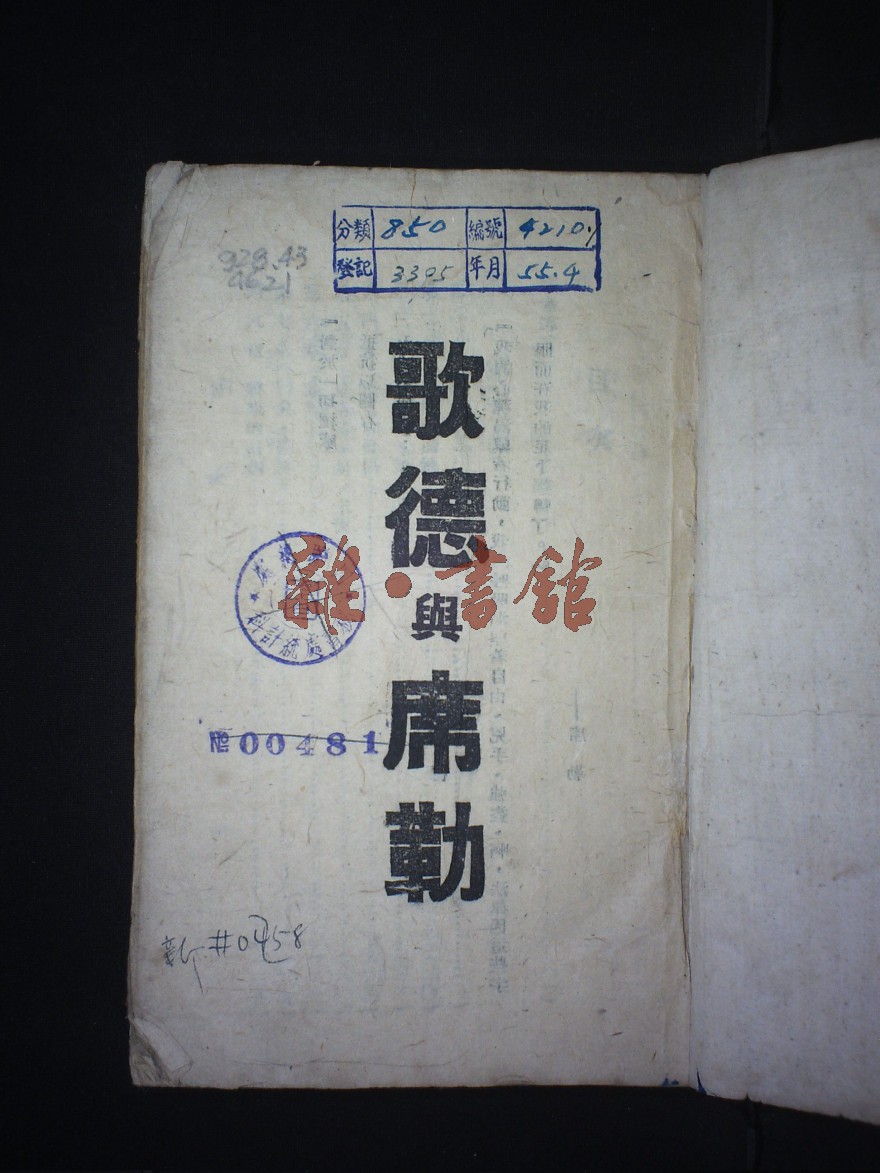 分類 850 編號 4210.1
登記 3395 年月 55.4
928.43
4621
歌德與席勒
雜·書館
№00481
新#0458